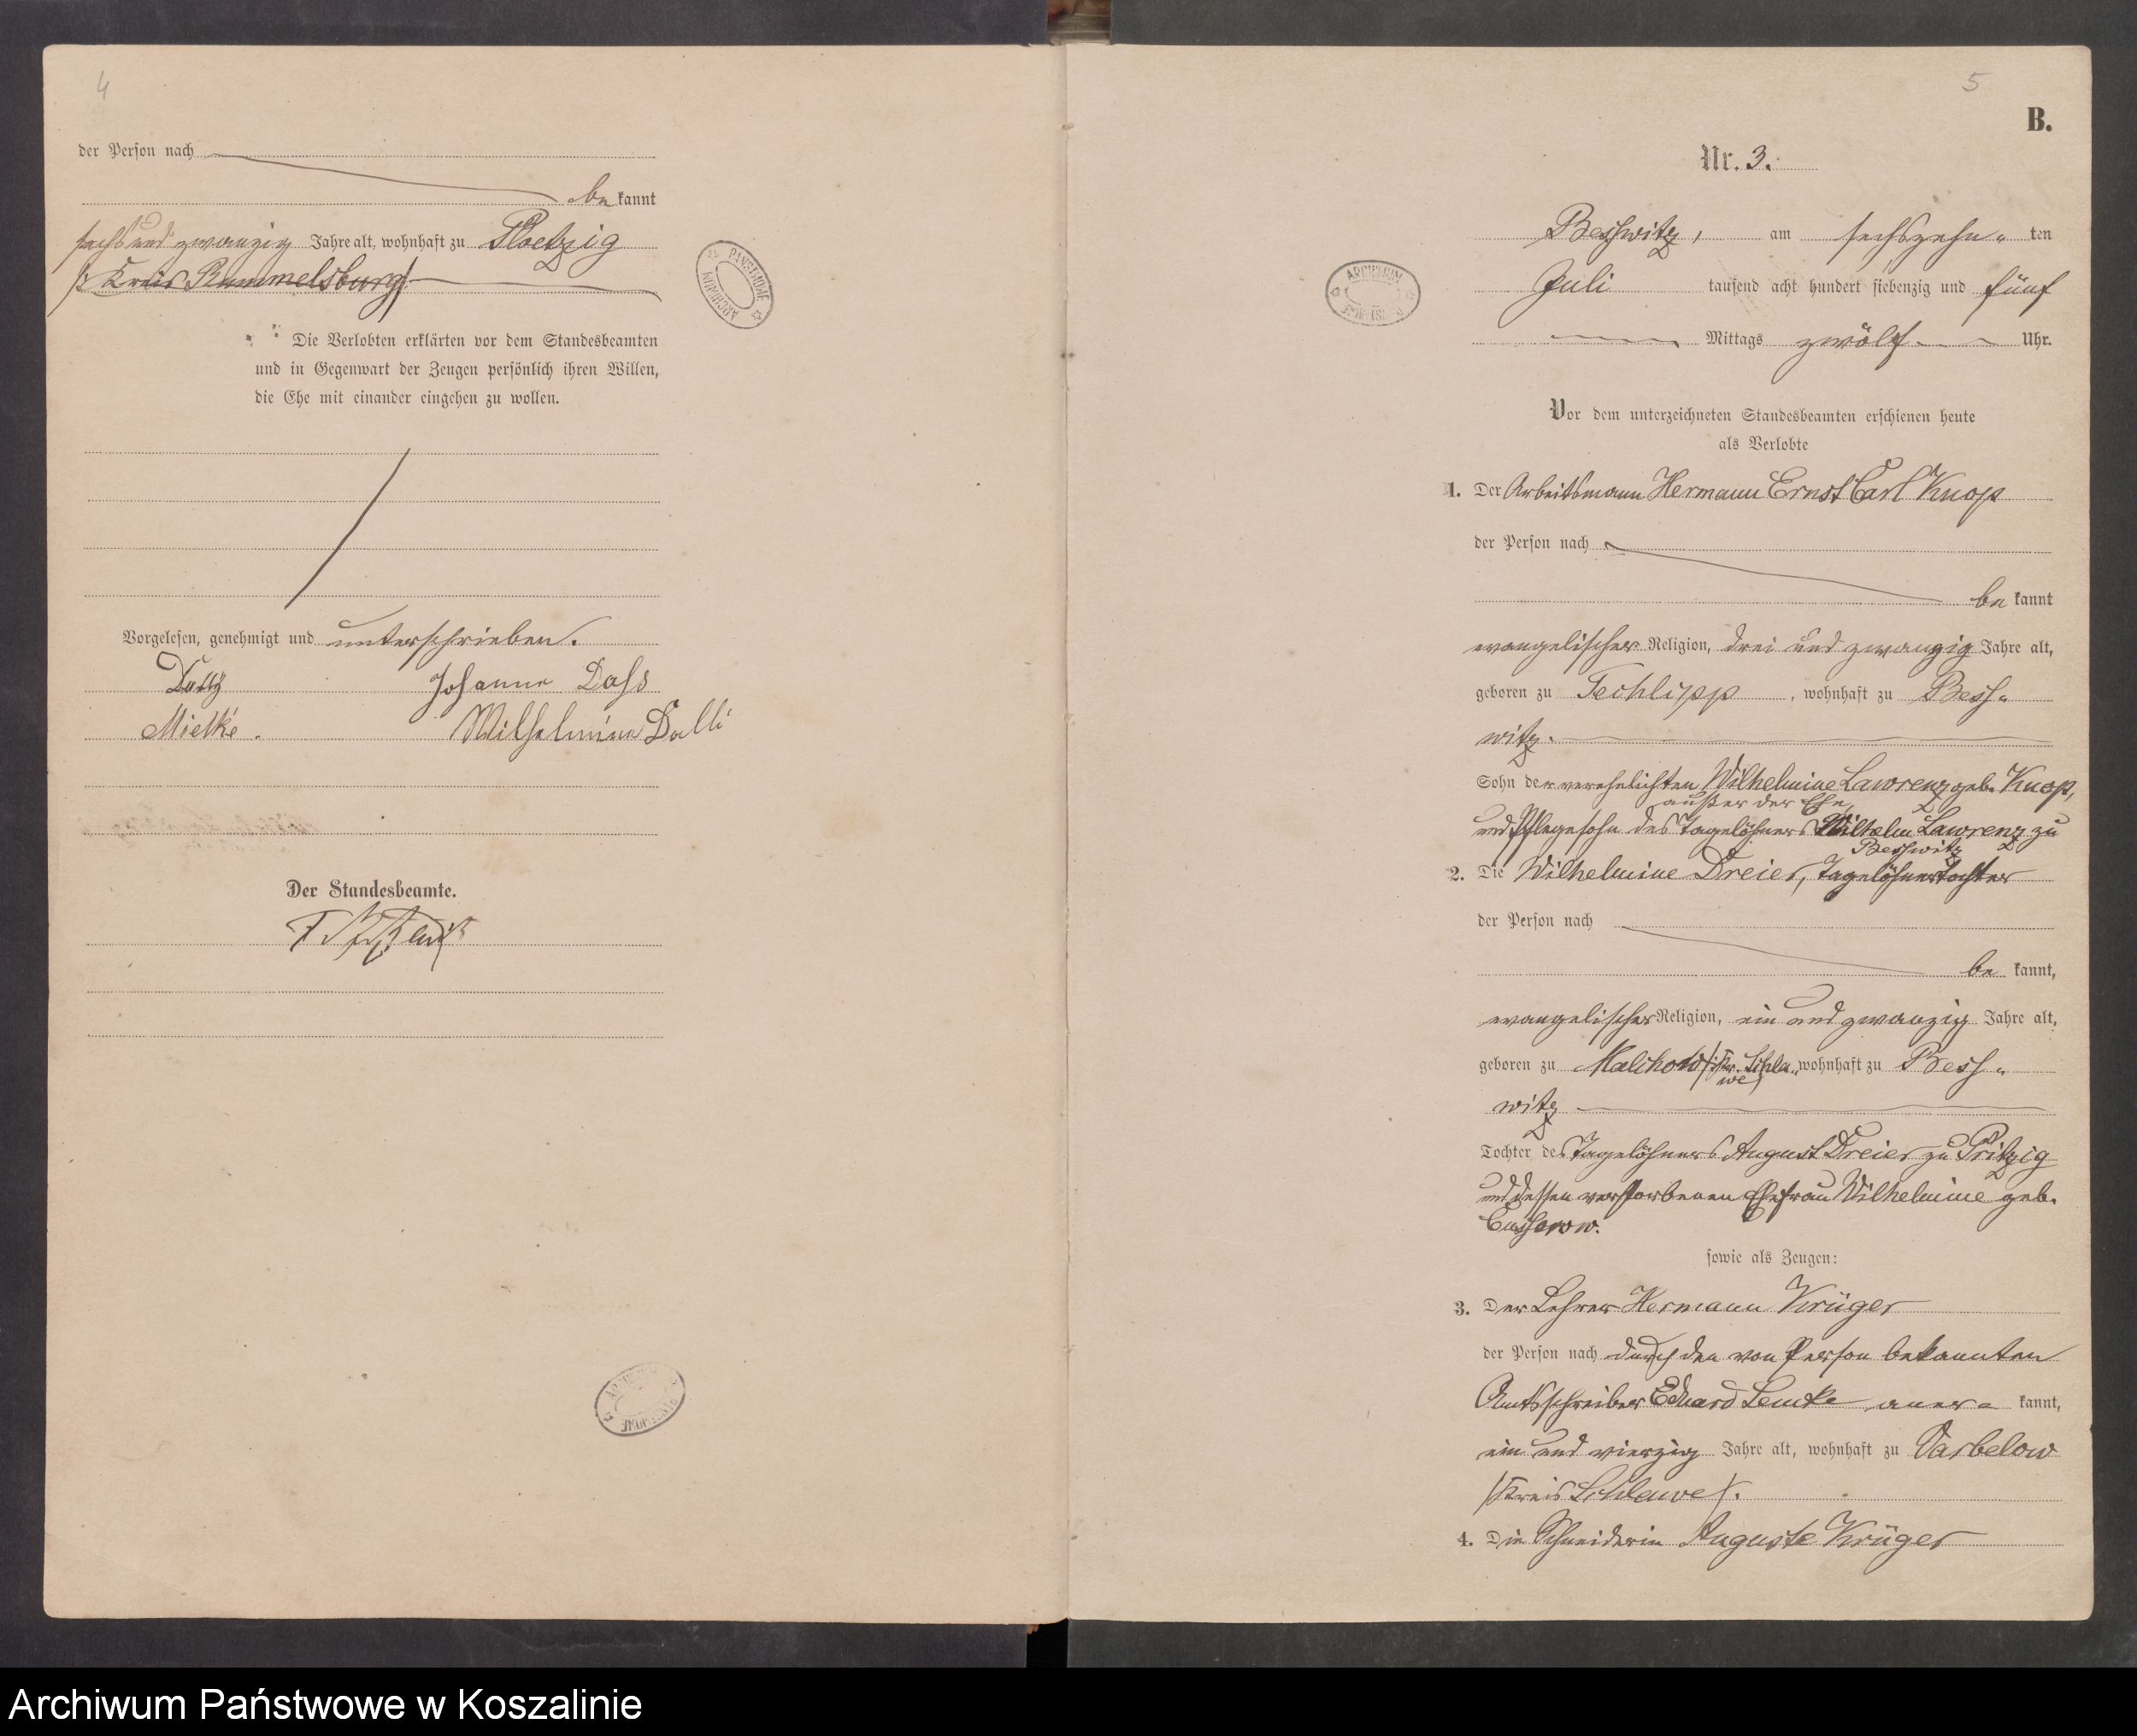 4
der Person nach
bekannt
sechs und zwanzig Jahre alt, wohnhaft zu Ploetzig
/: Kreis Rummelsburg /.
Die Verlobten erklärten vor dem Standesbeamten
und in Gegenwart der Zeugen persönlich ihren Willen,
die Ehe mit einander eingehen zu wollen.
Vorgelesen, genehmigt und unterschrieben.
Johann Dahs
Mielke. Wilhelmine Dalli
Der Standesbeamte.
ARCHIWUM PAŃSTWOWE
5
B.
Nr. 3.
Besswitz, am sechszehn ten
Juli tausend acht hundert siebenzig und fünf
Mittags zwölf Uhr.
Vor dem unterzeichneten Standesbeamten erschienen heute
als Verlobte
1. Der Arbeitsmann Hermann Ernst Carl Knop
der Person nach
bekannt
evangelischer Religion, drei und zwanzig Jahre alt,
geboren zu Techlipp, wohnhaft zu Bess-
witz.
Sohn der verehelichten Wilhelmine Lawrenz geb. Knop,
außer der Ehe,
und Pflegesohn des Tagelöhners Wilhelm Lawrenz zu
Besswitz
2. Die Wilhelmine Dreier, Tagelöhnertochter
der Person nach
bekannt,
evangelischer Religion, ein und zwanzig Jahre alt,
geboren zu Malchow /: Kr. Schla- wohnhaft zu Bess-
we/
witz
Tochter des Tagelöhners August Dreier zu Pritzig
und dessen verstorbenen Ehefrau Wilhelmine geb.
Cusserow.
sowie als Zeugen:
3. Der Lehrer Hermann Krüger
der Person nach durch den von Person bekannten
Amtsschreiber Eduard Lemke aner-kannt,
ein und vierzig Jahre alt, wohnhaft zu Varbelow
/Kreis Schlawe/.
4. Die Schneiderin Auguste Krüger
Archiwum Państwowe w Koszalinie